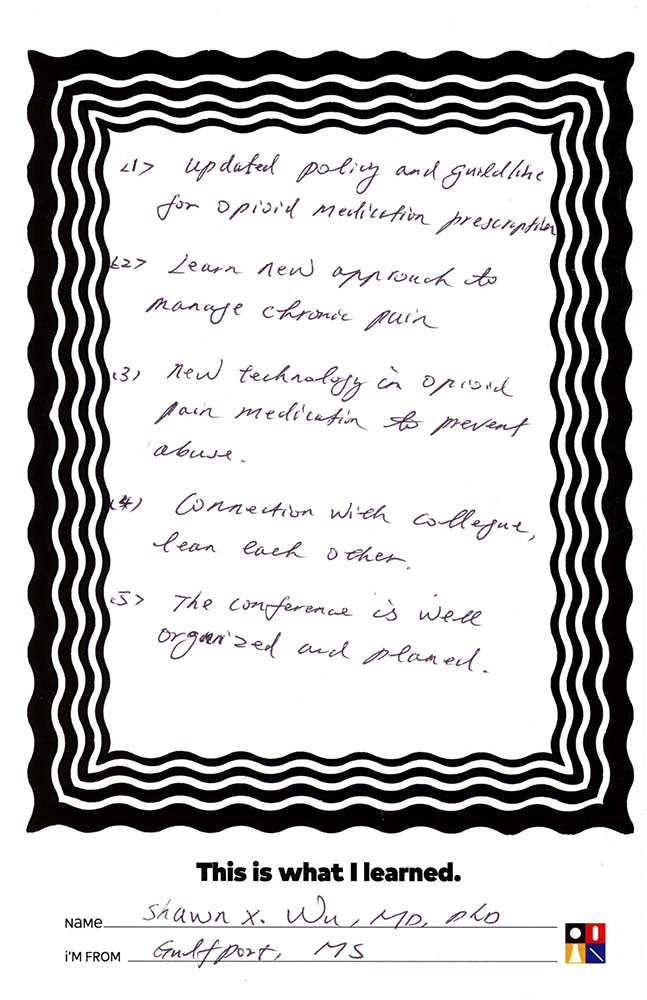 <1> updated policy and guildline
for opioid medication prescription
<2> Learn new approach to
manage chronic pain
(3) new technology in opioid
pain medication to prevent
abuse.
(4) Connection with collegue,
lean each other.
<5> The conference is well
organized and planed.
This is what I learned.
Name Shawn X. Wu, MD, PhD
i'm from Gulfport, MS